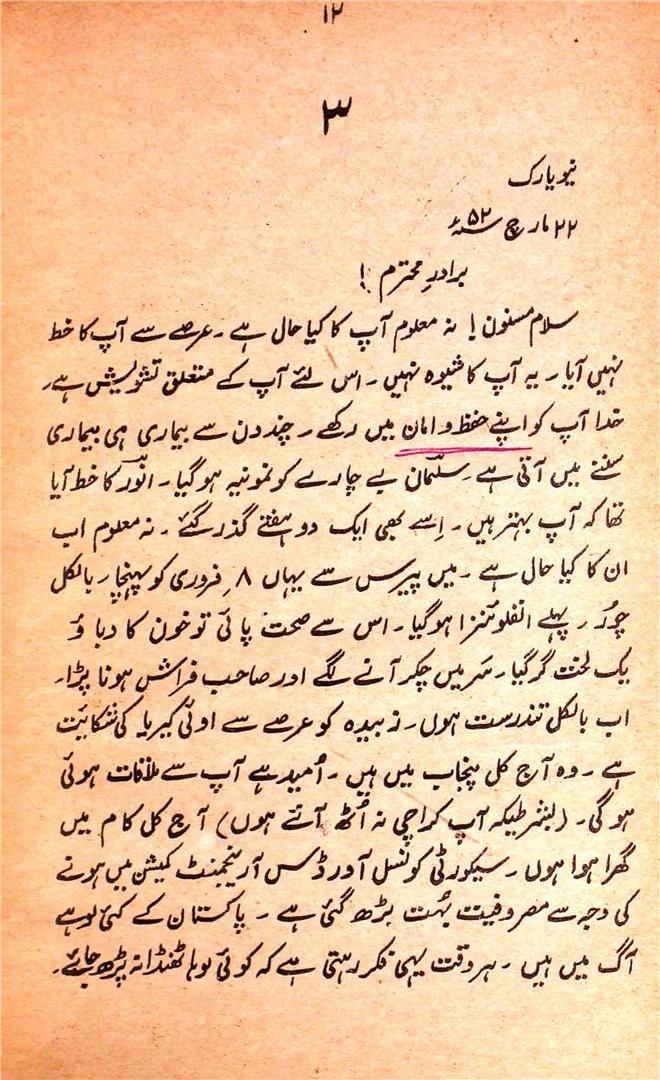 ۱۲
۳
نیویارک
۲۲ مارچ ۵۲ء
برادرِ محترم !
سلام مسنون! نہ معلوم آپ کا کیا حال ہے ۔ عرصے سے آپ کا خط
نہیں آیا ۔ یہ آپ کا شیوہ نہیں ۔ اس لئے آپ کے متعلق تشویش ہے۔
خدا آپ کو اپنے حفظ و امان میں رکھے ۔ چند دن سے بیماری ہی بیماری
سننے میں آتی ہے ۔ سلیمان بے چارے کو نمونیہ ہو گیا ۔ انور کا خط آیا
تھا کہ آپ بہتر ہیں ۔ اِسے بھی ایک دو ہفتے گذر گئے ۔ نہ معلوم اب
ان کا کیا حال ہے ۔ میں پیرس سے یہاں ۸ فروری کو پہنچا ۔ بالکل
چُور ۔ پہلے انفلوئنزا ہو گیا ۔ اس سے صحت پائی تو خون کا دباؤ
یک لخت گر گیا ۔ سَر میں چکر آنے لگے اور صاحب فراش ہونا پڑا۔
اب بالکل تندرست ہوں ۔ زبیدہ کو عرصے سے اوٹی کیریا کی شکایت
ہے ۔ وہ آج کل پنجاب میں ہیں ۔ اُمید ہے آپ سے ملاقات ہوئی
ہو گی ۔ (بشرطیکہ آپ کراچی نہ اُٹھ آئے ہوں) آج کل کام میں
گھرا ہوا ہوں ۔ سیکورٹی کونسل آور ڈس آرینجمنٹ کمیشن میں ہونے
کی وجہ سے مصروفیت بہُت بڑھ گئی ہے ۔ پاکستان کے کئی لوہے
آگ میں ہیں ۔ ہر وقت یہی فکر رہتی ہے کہ کوئی لوہا ٹھنڈا نہ پڑھ جائے۔